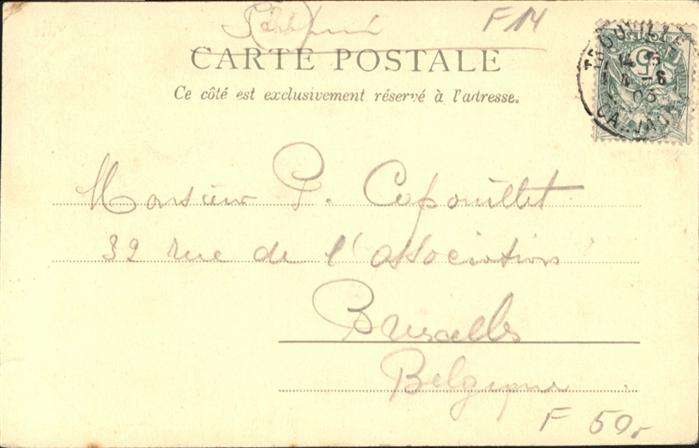 F 14
CARTE POSTALE
Ce côté est exclusivement réservé à l'adresse.
TROUVILLE
CALVADOS
Monsieur P. Capouillet
32 rue de l'association
Bruxelles
Belgique
F 50